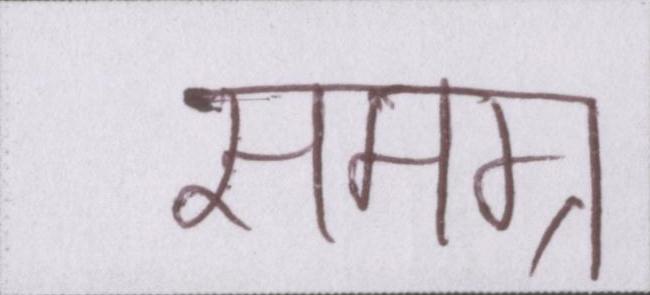 समग्र